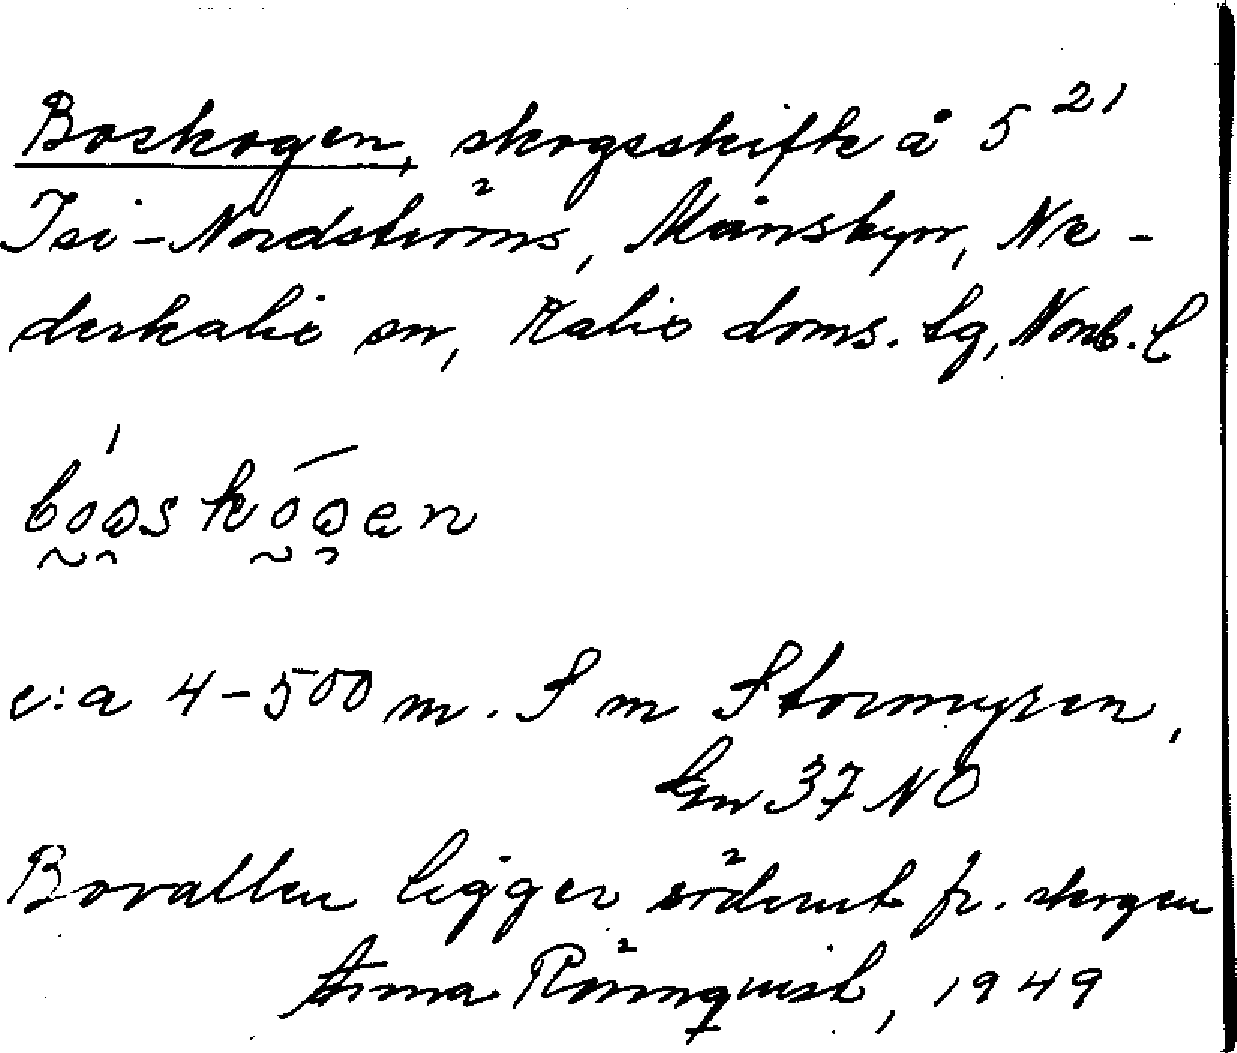 Boskogen, skogsskifte å 5 21
Isi-Nordströms, Månsbyn, Ne-
derkalix sn, Kalix doms. lg, Norrb. l
c:a 4-500 m. S om Stormyren,
Gn 37 NO
Bovallen ligger söderut fr. skogen
Anna Rönnquist, 1949